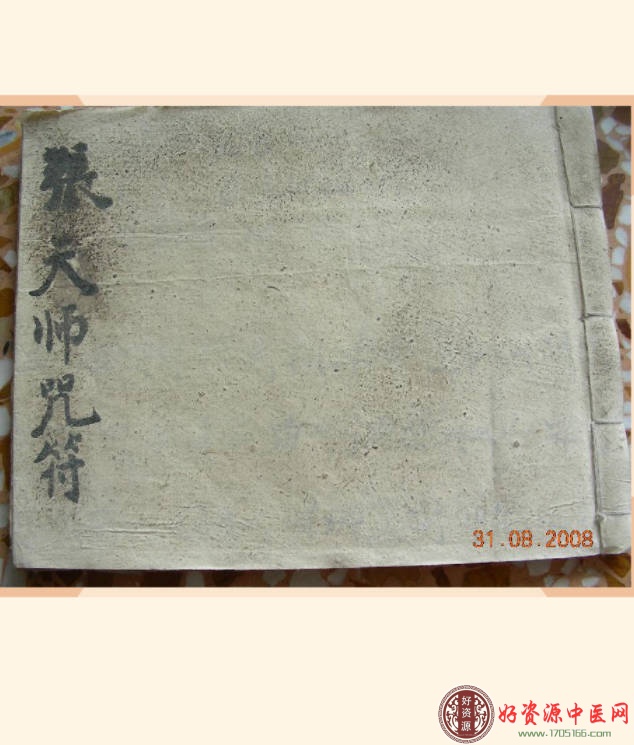 張天师咒符
31.08.2008
好资源
好资源中医网
www.1705166.com